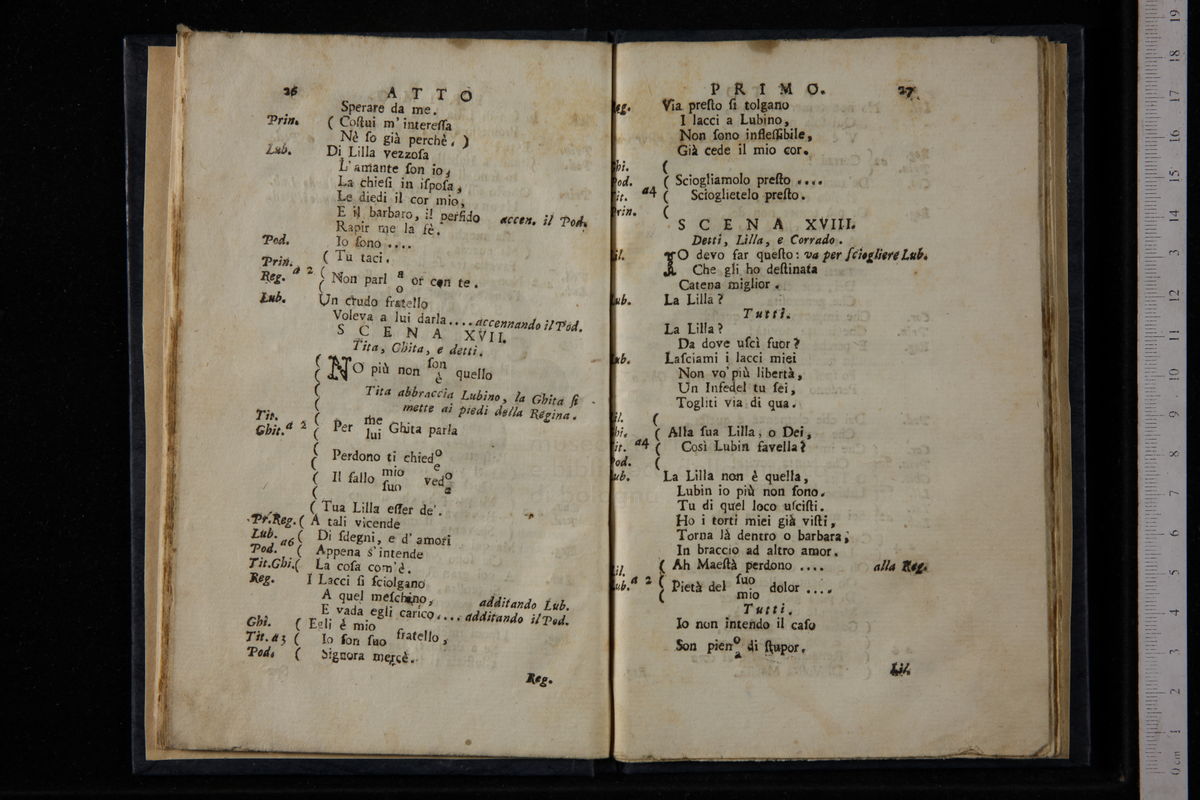 26 ATTO
Sperare da me.
Prin. ( Coſtui m' intereſſa
Nè ſo già perchè. )
Lub. Di Lilla vezzoſa
L'amante ſon io,
La chieſi in iſpoſa,
Le diedi il cor mio,
E il barbaro, il perfido accen. il Pod.
Rapir me la fè.
Pod. Io ſono ....
Prin. ( Tu taci.
Reg. a 2 ( Non parl a or con te.
o
Lub. Un crudo fratello
Voleva a lui darla .... accennando il Pod.
SCENA XVII.
Tita, Ghita, e detti.
( NO più non ſon quello
è
Tita abbraccia Lubino, la Ghita ſi
mette ai piedi della Regina.
Tit.
Ghit. a 2 ( Per me Ghita parla
lui
Perdono ti chied o
e
( Il fallo mio ved o
ſuo e
( Tua Lilla eſſer de'.
Pr. Reg. ( A tali vicende
Lub. a6 ( Di ſdegni, e d' amori
Pod. ( Appena s' intende
Tit. Ghi. ( La coſa com'è.
Reg. I Lacci ſi ſciolgano
A quel meſchino, additando Lub.
E vada egli carico.... additando il Pod.
Ghi. ( Egli è mio
Tit. a 3 ( Io ſon ſuo fratello,
Pod. ( Signora mercè.
Reg.
PRIMO. 27
eg. Via preſto ſi tolgano
I lacci a Lubino,
Non ſono infleſſibile,
Già cede il mio cor.
hi. (
od. ( Sciogliamolo preſto ....
it. a4 ( Scioglietelo preſto.
rin. (
SCENA XVIII.
Detti, Lilla, e Corrado.
il. IO devo far queſto: va per ſciogliere Lub.
Che gli ho deſtinata
Catena miglior.
ub. La Lilla?
Tutti.
La Lilla?
Da dove uſcì fuor?
ub. Laſciami i lacci miei
Non vo' più libertà,
Un Infedel tu ſei,
Togliti via di qua.
il. (
hi. ( Alla ſua Lilla, o Dei,
it. a4 ( Così Lubin favella?
od. (
ub. La Lilla non è quella,
Lubin io più non ſono.
Tu di quel loco uſciſti.
Ho i torti miei già viſti,
Torna là dentro o barbara,
In braccio ad altro amor.
il. ( Ah Maeſtà perdono .... alla Reg.
ub. a 2 ( Pietà del ſuo dolor ....
mio
Tutti.
Io non intendo il caſo
Son pien o di ſtupor.
a
Lil.